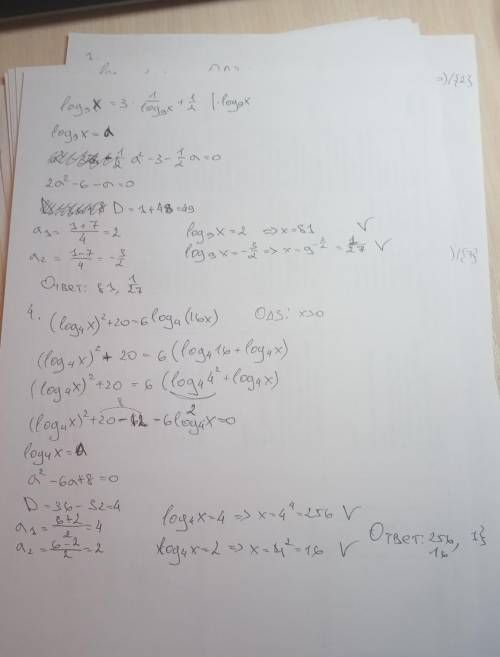 1.
)/{2}
log₉x = 3 · 1/log₉x + 1/2 | · log₉x
log₉x = a
a² - 3 - 1/2 a = 0
2a² - 6 - a = 0
D = 1 + 48 = 49
a₁ = (1+7)/4 = 2 log₉x = 2 => x = 81 V
a₂ = (1-7)/4 = -3/2 log₉x = -3/2 => x = 9^(-3/2) = 1/27 V
Ответ: 81, 1/27
4. (log₄x)² + 20 = 6 log₄(16x) ОДЗ: x>0
(log₄x)² + 20 = 6 (log₄16 + log₄x)
(log₄x)² + 20 = 6 (log₄4² + log₄x)
8
2
(log₄x)² + 20 - 12 - 6log₄x = 0
log₄x = a
a² - 6a + 8 = 0
D = 36 - 32 = 4
a₁ = (6+2)/2 = 4 log₄x = 4 => x = 4⁴ = 256 V
a₂ = (6-2)/2 = 2 log₄x = 2 => x = 4² = 16 V
Ответ: 256,
16